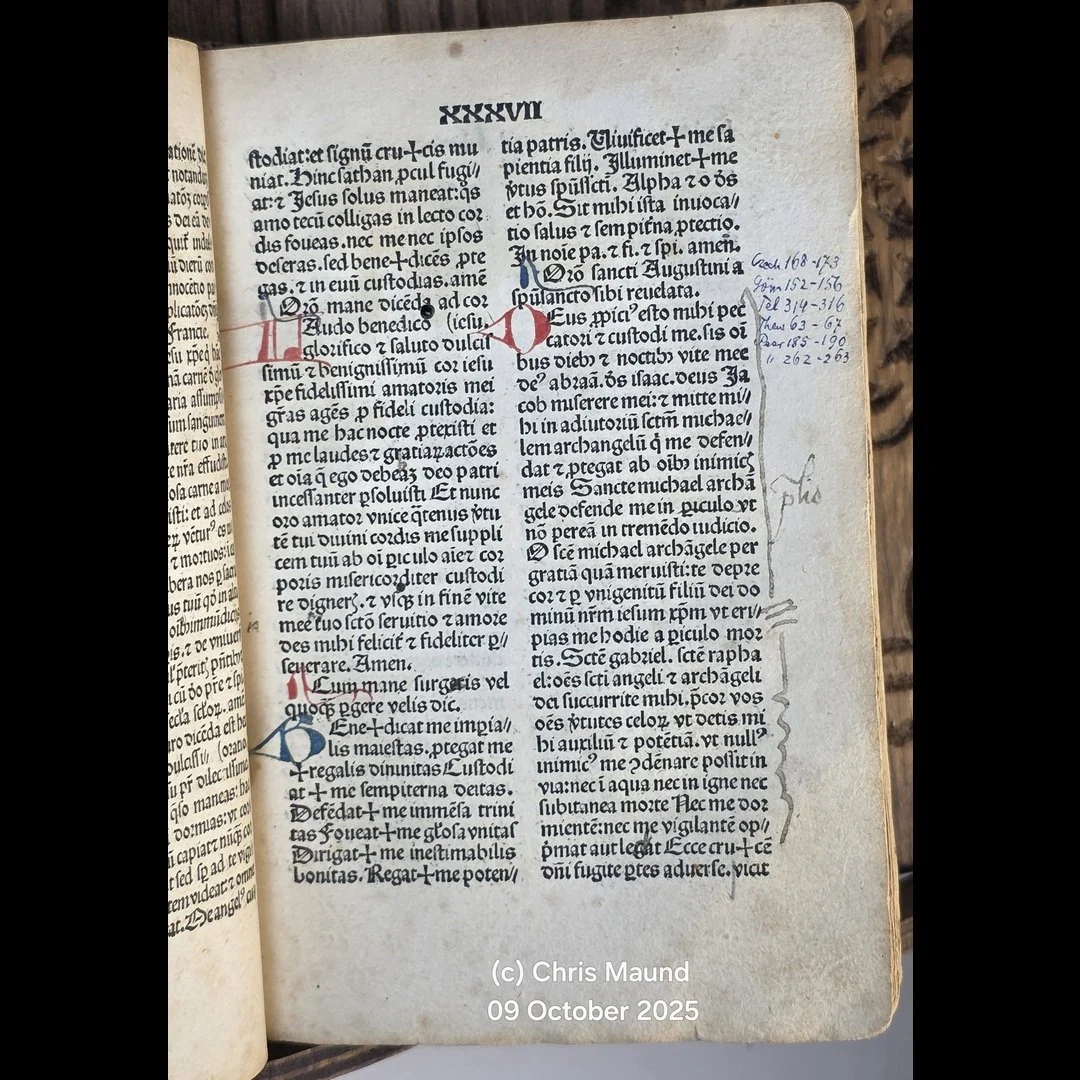 XXXVII
stodiat:et signū cru+cis mu
niat.Hinc sathan ꝓcul fugi//
at:⁊ Jesus solus maneat:q̄s
amo tecū colligas in lecto cor
dis foueas.nec me nec ipsos
deseras.sed bene+dicēs ꝓte
gas.⁊ in euū custodias.amē
Orō. mane dicēda ad cor
LAudo benedico (iesu.
glorifico ⁊ saluto dulcis
simū ⁊ benignissimū cor iesu
xp̄e fidelissimi amatoris mei
gr̄as agēs ꝓ fideli custodia:
qua me hac nocte ꝓtexisti et
ꝓ me laudes ⁊ gratiaꝝ actōes
et oīa q̄ ego debeaʒ deo patri
incessanter ꝑsoluisti Et nunc
oro amator vnice q̄tenus v̄tu
tē tui diuini cordis me suppli
cem tuū ab oī ꝑiculo aīe ⁊ cor
poris misericorditer custodi
re digneꝝ.⁊ vsqꝫ in finē vite
mee tuo sctō seruitio ⁊ amore
des mihi felicit̄ ⁊ fideliter ꝑ//
seuerare.Amen.
Cum mane surgeris vel
quoqꝫ ꝑgere velis dic.
BEne+dicat me imꝑia//
lis maiestas.ꝓtegat me
+regalis diuinitas Custodi
at + me sempiterna deitas.
Defēdat+me immēsa trini
tas Foueat+me gl̄osa vnitas
Dirigat+ me inestimabilis
bonitas.Regat+me poten//
tia patris.Viuificet+me sa
pientia filij.Illuminet+me
v̄tus sp̄ūssctī.Alpha ⁊ o d̄s
et hō.Sit mihi ista inuoca//
tio salus ⁊ sempit̄na ꝓtectio.
In noīe pa.⁊ fi.⁊ spi.amen.
Orō sancti Augustini a
sp̄ūsancto sibi reuelata.
DEus ꝓpiciꝰ esto mihi pec
catori ⁊ custodi me.sis oī
bus diebꝫ ⁊ noctibꝫ vite mee
deꝰ abraā.d̄s isaac.deus Ja
cob miserere mei:⁊ mitte mi//
hi in adiutoriū sctm̄ michae//
lem archangelū q̄ me defen//
dat ⁊ ꝓtegat ab oībꝫ inimicꝭ
meis Sancte michael archā
gele defende me in ꝑiculo vt
nō pereā in tremēdo iudicio.
O scē michael archāgele per
gratiā quā meruisti:te depre
cor ⁊ ꝑ vnigenitū filiū dei do
minū nr̄m iesum xp̄m vt eri//
pias me hodie a ꝑiculo mor
tis.Sctē gabriel.sctē rapha
el:oēs sctī angeli ⁊ archāgeli
dei succurrite mihi.p̄cor vos
oēs v̄tutes celoꝝ vt detis mi
hi auxiliū ⁊ potētiā.vt nullꝰ
inimicꝰ me ꝯdēnare possit in
via:nec ī aqua nec in igne nec
subitanea morte Nec me dor
mientē:nec me vigilantē op//
p̄mat aut legat Ecce cru+cē
dn̄i fugite ꝑtes aduerse.vicit
168-173
152-156
314-316
63-67
185-190
" 262-263
(c) Chris Maund
09 October 2025